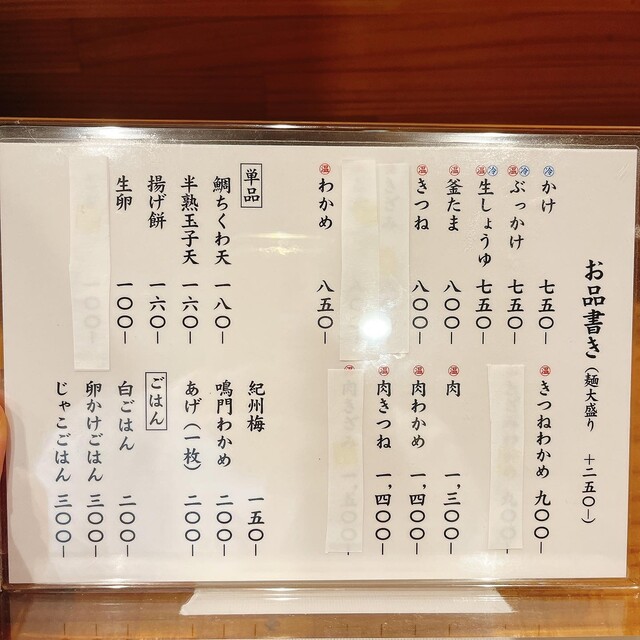 お品書き(麺大盛り +二五〇-)
冷 かけ 七五〇-
温 冷 ぶっかけ 七五〇-
温 冷 生しょうゆ 七五〇-
温 釜たま 八〇〇-
温 きつね 八〇〇-
温 わかめ 八五〇-
温 きつねわかめ 九〇〇-
温 肉 一,三〇〇-
温 肉わかめ 一,四〇〇-
温 肉きつね 一,四〇〇-
単品
鯛ちくわ天 一八〇-
半熟玉子天 一六〇-
揚げ餅 一六〇-
生卵 一〇〇-
紀州梅 一五〇-
鳴門わかめ 二〇〇-
あげ(一枚) 二〇〇-
ごはん
白ごはん 二〇〇-
卵かけごはん 三〇〇-
じゃこごはん 三〇〇-